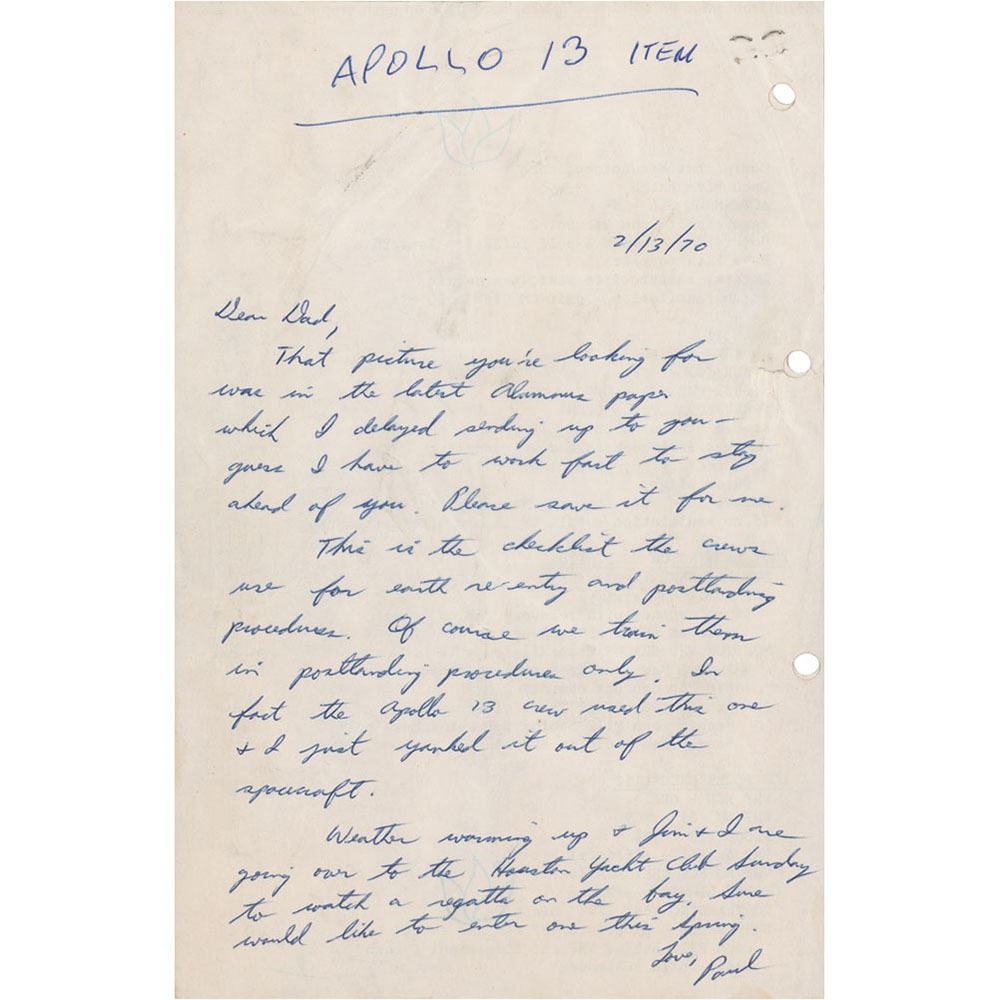 APOLLO 13 ITEM
2/13/70
Dear Dad,
That picture you're looking for
was in the latest paper
which I delayed sending up to you –
guess I have to work fast to stay
ahead of you. Please save it for me.
This is the checklist the crews
use for earth re-entry and postlanding
procedures. Of course we train them
in postlanding procedures only. In
fact the Apollo 13 crew used this one
& I just yanked it out of the
spacecraft.
Weather warming up & Jim & I are
going over to the Houston Yacht Club Sunday
to watch a regatta on the bay. Sure
would like to enter one this Spring.
Love,
Paul